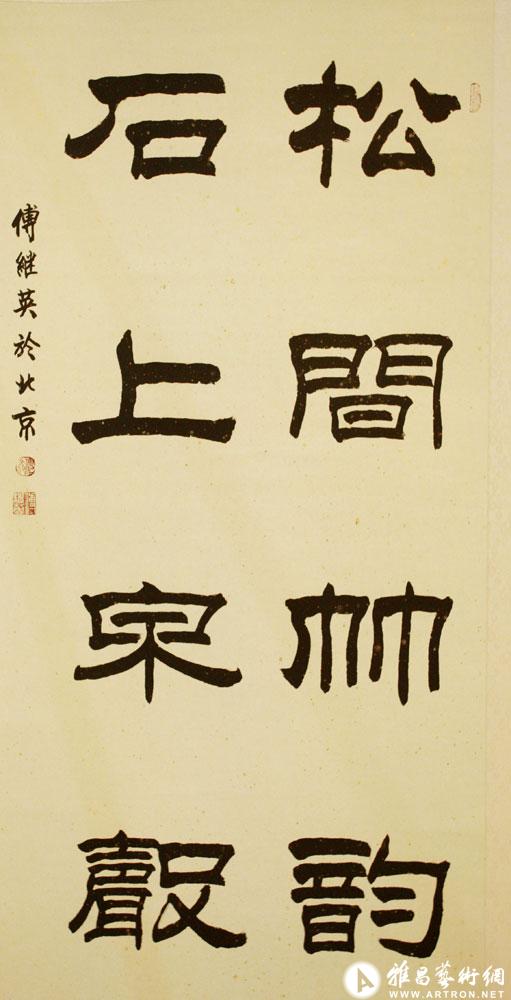 松間竹韵
石上泉聲
傅继英於北京
雅昌藝術網
WWW.ARTRON.NET